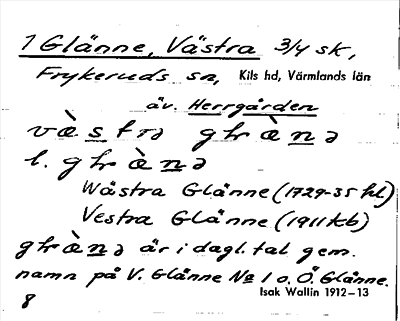 1 Glänne, Västra 3/4 sk,
Frykeruds sn, Kils hd, Värmlands län
äv. Herrgården
væ̀strə ghæ̀nə
l. ghæ̀nə
Wästra Glänne (1729-35 hl)
Vestra Glänne (1911 kb)
ghæ̀nə är i dagl. tal gem.
namn på V. Glänne No 1 o. Ö. Glänne.
Isak Wallin 1912-13
8